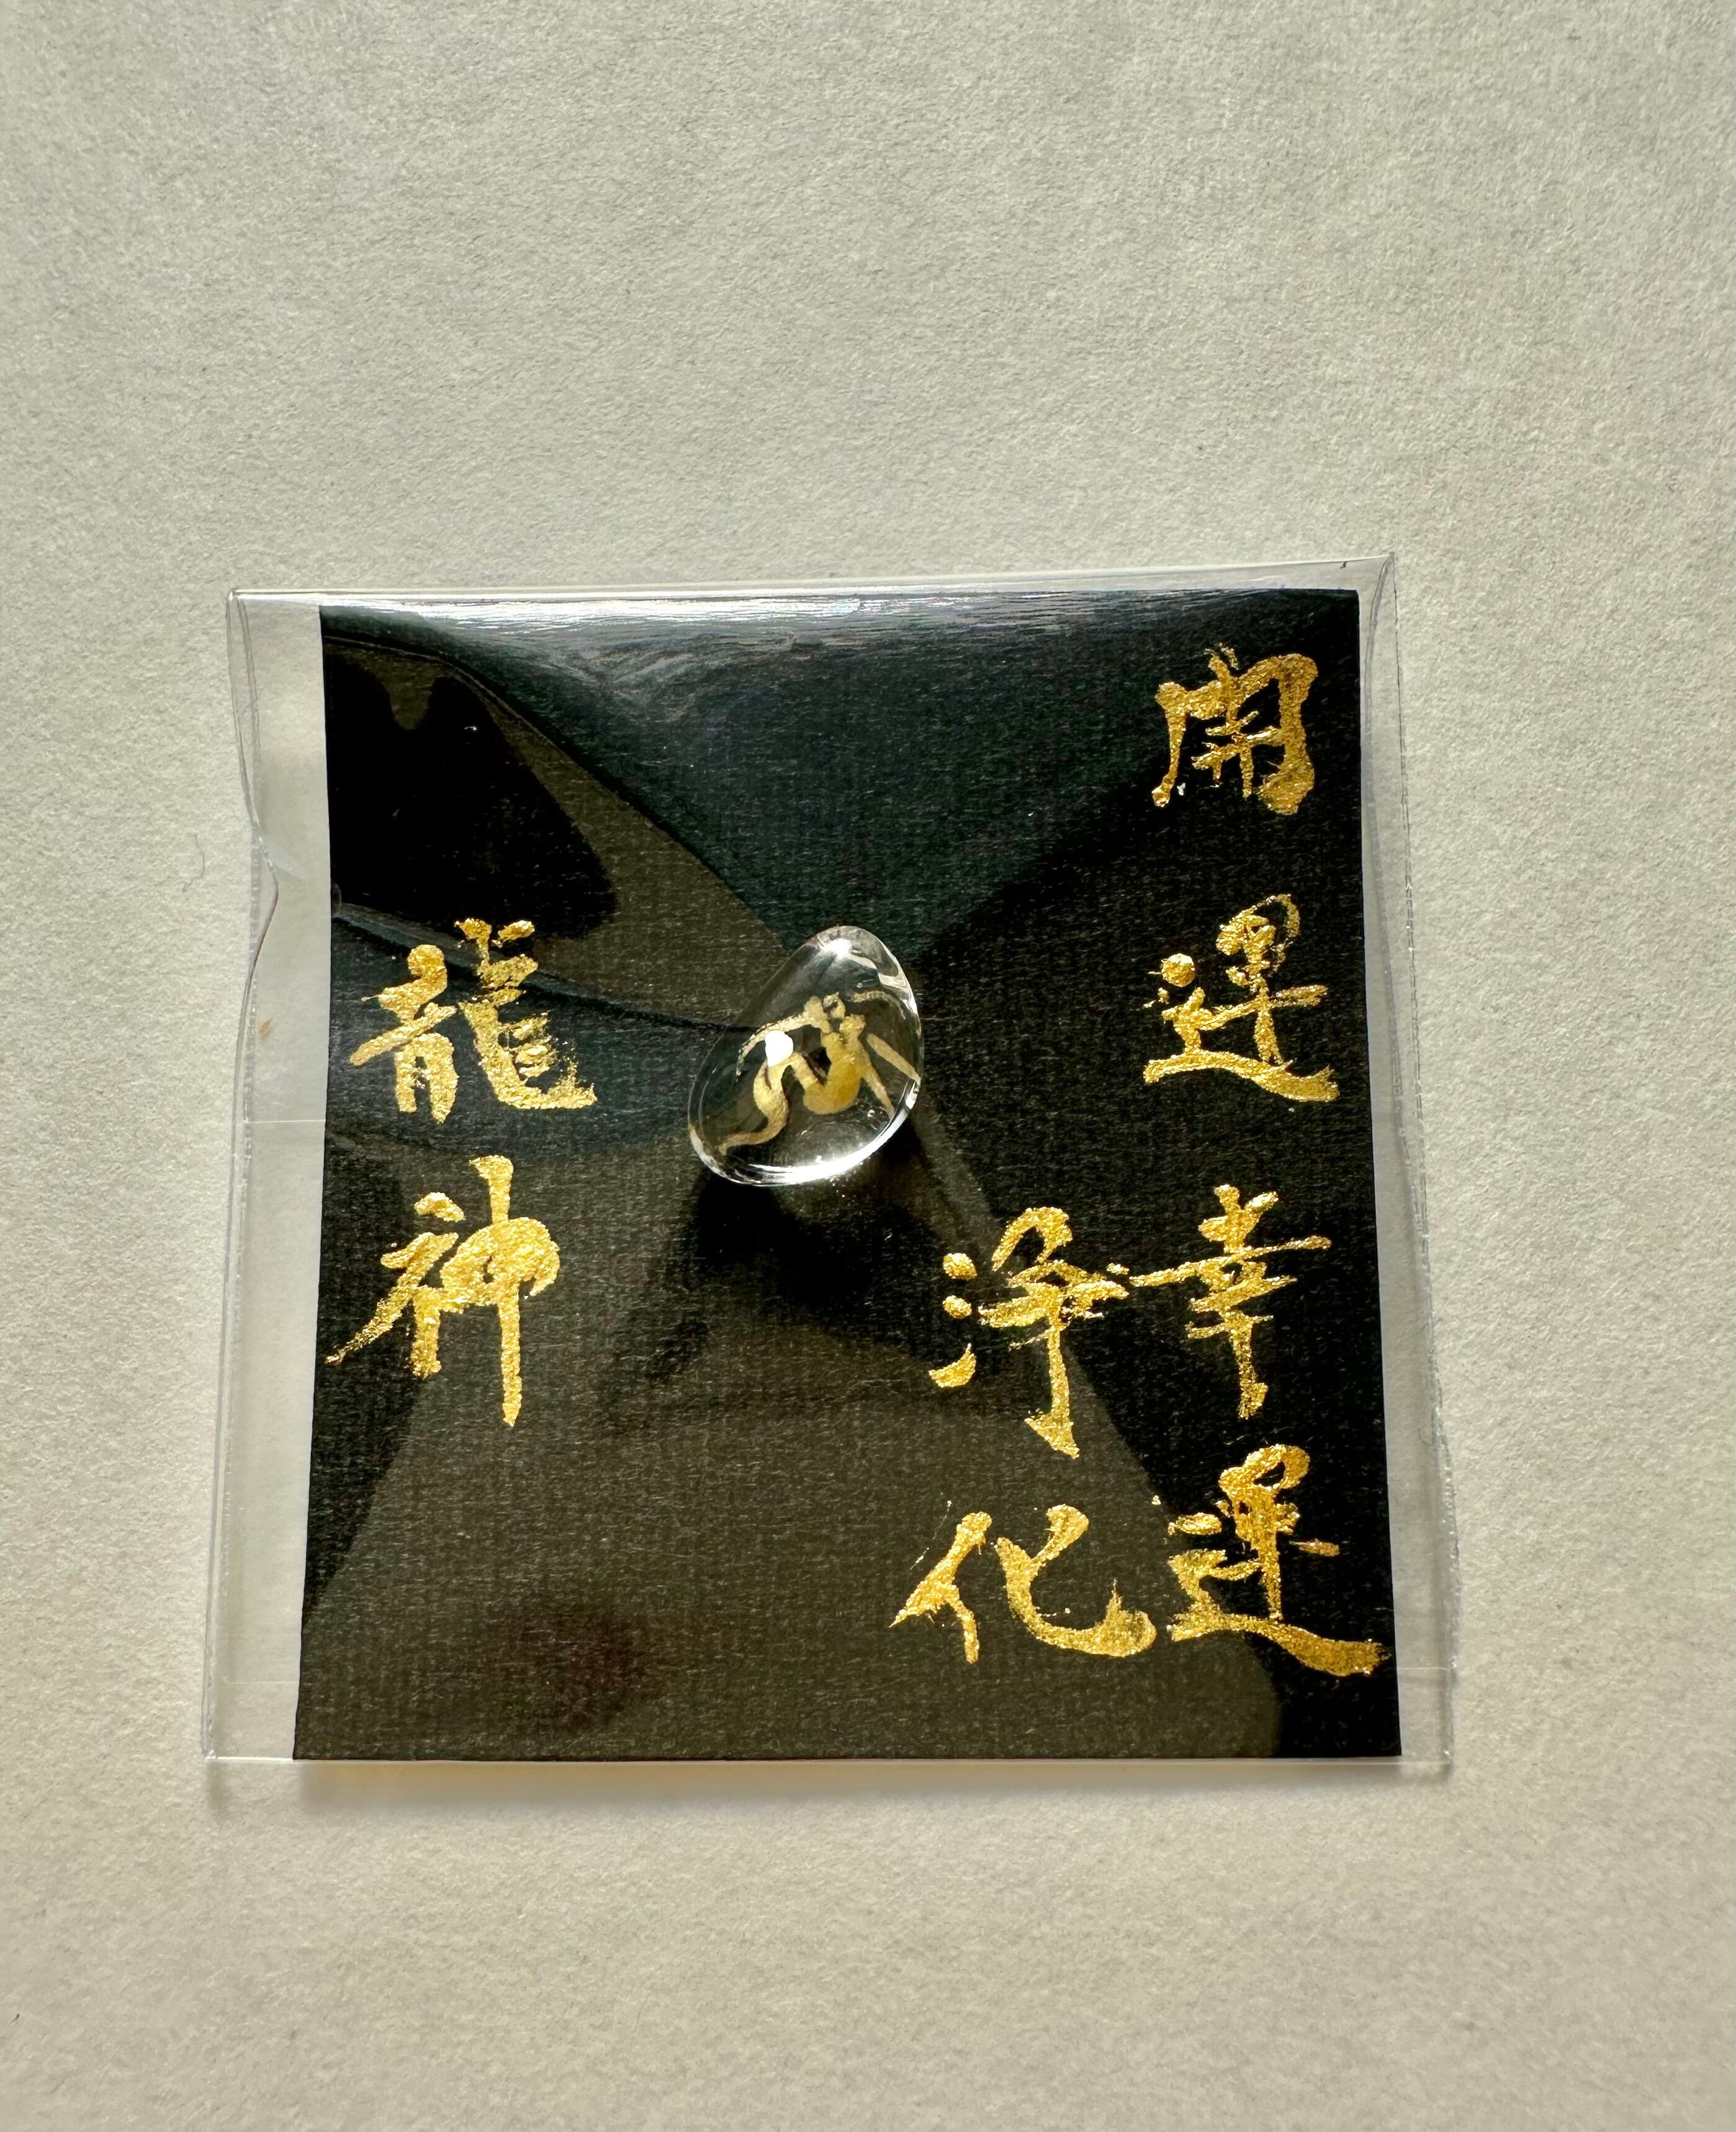 開運幸運
浄化
龍神